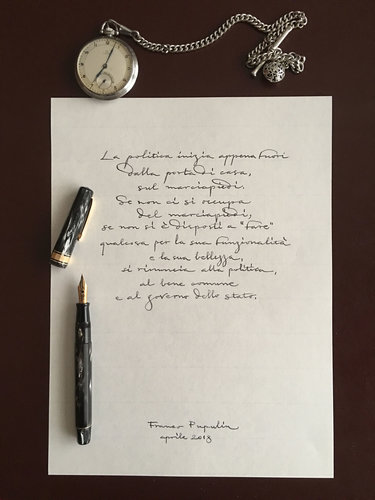 La politica inizia appena fuori
dalla porta di casa,
sul marciapiedi.
Se non ci si occupa
del marciapiedi,
se non si è disposti a "fare"
qualcosa per la sua funzionalità
e la sua bellezza,
si rinuncia alla politica,
al bene comune
e al governo dello stato.
Franco Pupulin
aprile 2018